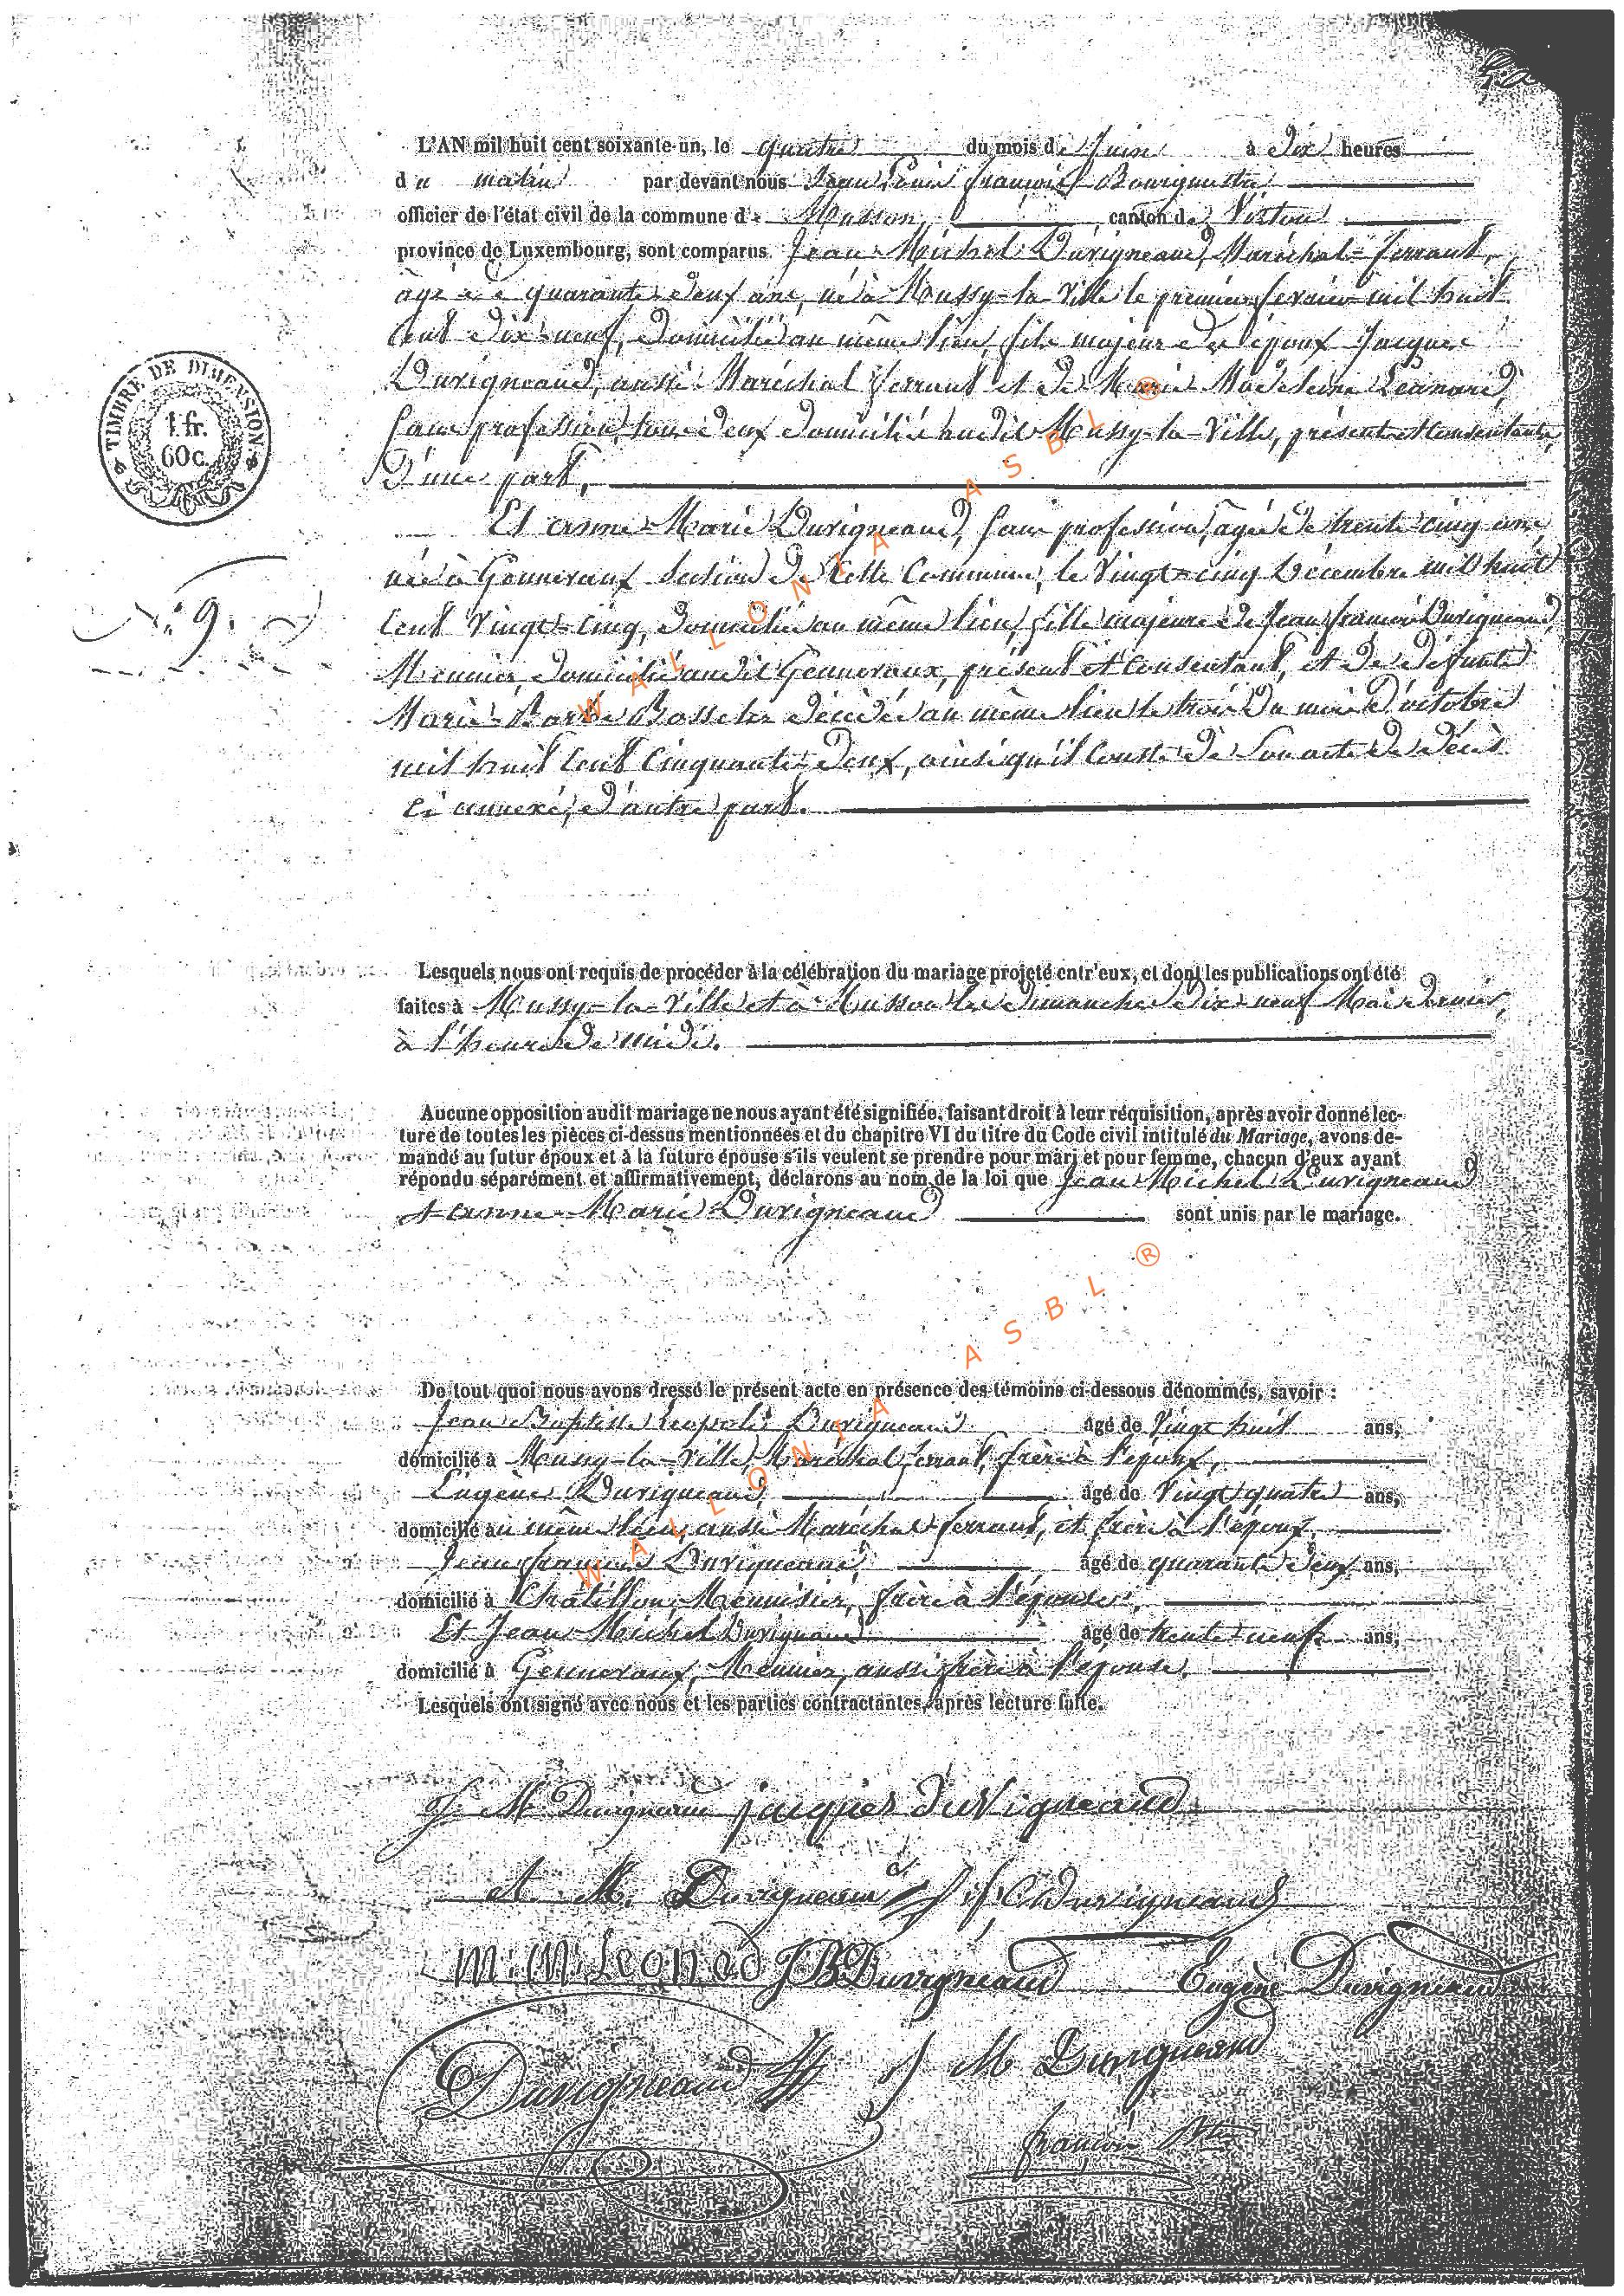 L'AN mil huit cent soixante-un, le quatre du mois de Juin à Dix heures
du matin par devant nous Jean Louis François Bourgmestre
officier de l'état civil de la commune de Musson, canton de Virton
province de Luxembourg, sont comparus Jean-Michel Duvigneaud, Maréchal-ferrant,
âgé de quarante-deux ans, né à Mussy-la-Ville le premier février mil huit
Cent dix-neuf, domicilié au même lieu, fils majeur des époux Jacques
Duvigneaud, aussi Maréchal ferrant et de Marie Madeleine Léonard,
Sans profession, tous deux domiciliés audit Mussy-la-Ville, présents et consentants,
D'une part,
Et anne-Marie Duvigneaud, Sans profession, agée de trente-cinq ans,
née à Gennevaux Section de Cette Commune, le Vingt-cinq Décembre mil huit
Cent Vingt-Cinq, domiciliée au même lieu, fille majeure de Jean françois Duvigneaud,
Meunier, domicilié audit Gennevaux, présent et consentant, et de défunte
Marie-Barbe Bosseler décédée au même lieu le trois du mois d'octobre
mil huit Cent Cinquante-deux, ainsi qu'il Conste de Son acte de décès
Ci annexé, d'autre part.
TIMBRE DE DIMENSION
1. fr.
60 c.
N° 9.
Lesquels nous ont requis de procéder à la célébration du mariage projeté entr'eux, et dont les publications ont été
faites à Mussy-la-Ville et à Musson les dimanche dix-neuf Mai dernier,
à l'heure de midi.
Aucune opposition audit mariage ne nous ayant été signifiée, faisant droit à leur réquisition, après avoir donné lec-
ture de toutes les pièces ci-dessus mentionnées et du chapitre VI du titre du Code civil intitulé du Mariage, avons de-
mandé au futur époux et à la future épouse s'ils veulent se prendre pour mari et pour femme, chacun d'eux ayant
répondu séparément et affirmativement, déclarons au nom de la loi que Jean-Michel Duvigneaud
et anne-Marie Duvigneaud sont unis par le mariage.
De tout quoi nous avons dressé le présent acte en présence des témoins ci-dessous dénommés, savoir :
Jean Baptiste Léopold Duvigneaud âgé de Vingt huit ans,
domicilié à Mussy-la-Ville, Maréchal ferrant, frère à l'époux,
Eugène Duvigneaud, âgé de Vingt quatre ans,
domicilié au même lieu, aussi Maréchal-ferrant, et frère à l'époux,
Jean françois Duvigneaud, âgé de quarante deux ans,
domicilié à Châtillon, Menuisier, frère à l'épouse,
Et Jean Michel Duvigneaud âgé de trente-neuf ans,
domicilié à Gennevaux, Meunier, aussi frère à l'épouse.
Lesquels ont signé avec nous et les parties contractantes, après lecture faite.
J. M. Duvigneaud jacques duVigneaud
A M. Duvigneaud J. f. Duvigneaud
m: m: Leonad JB Duvigneaud Eugène Duvigneaud
Duvigneaud J M Duvigneaud
françois
WALLONIA ASBL ®
WALLONIA ASBL ®